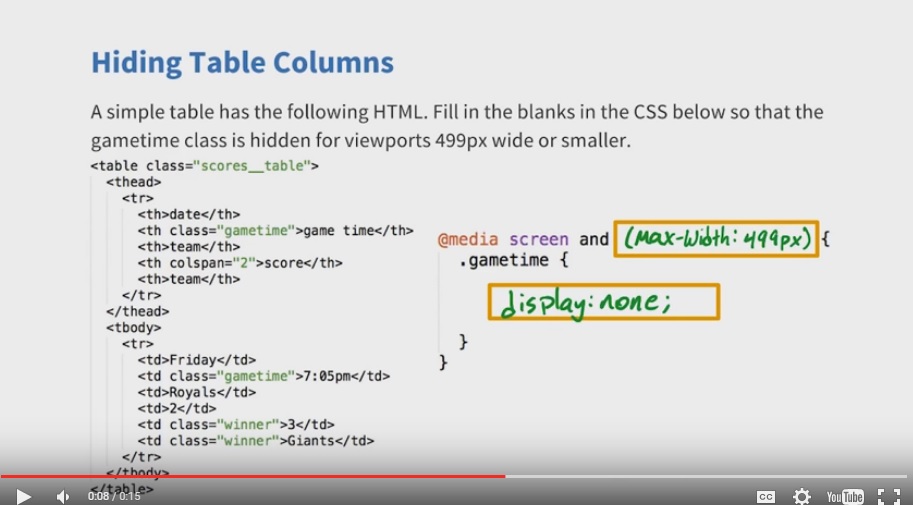 Hiding Table Columns
A simple table has the following HTML. Fill in the blanks in the CSS below so that the
gametime class is hidden for viewports 499px wide or smaller.
<table class="scores__table">
<thead>
<tr>
<th>date</th>
<th class="gametime">game time</th>
<th>team</th>
<th colspan="2">score</th>
<th>team</th>
</tr>
</thead>
<tbody>
<tr>
<td>Friday</td>
<td class="gametime">7:05pm</td>
<td>Royals</td>
<td>2</td>
<td class="winner">3</td>
<td class="winner">Giants</td>
</tr>
</tbody>
</table>
@media screen and (max-width: 499px) {
.gametime {
display: none;
}
}
0:08 / 0:15
CC
YouTube